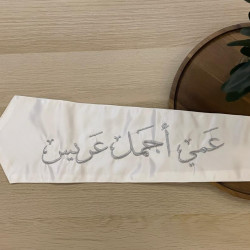 عَمي أجمَل عَريس